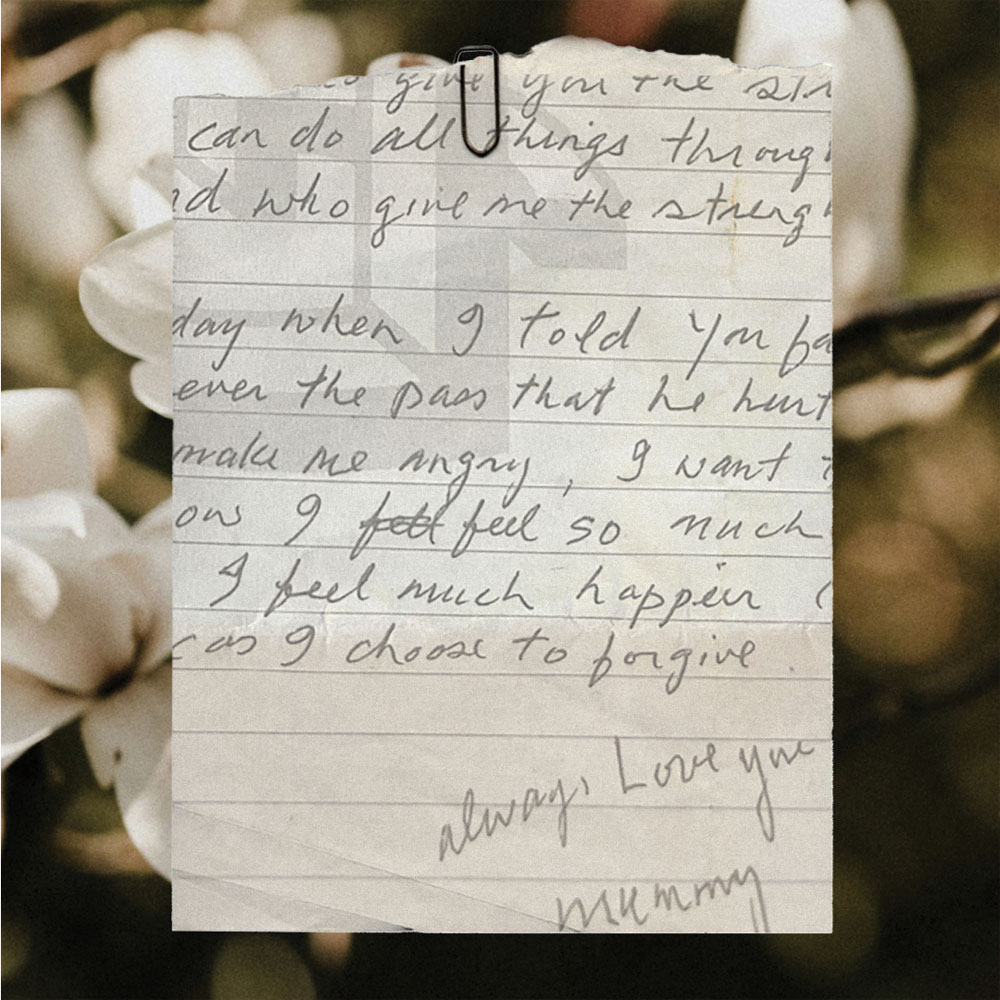 give you the
can do all things
who give me the
day when I told you
ever the pass that he hurt
make me angry, I want
I felt feel so much
I feel much happier
as I choose to forgive.
always Love you
mummy